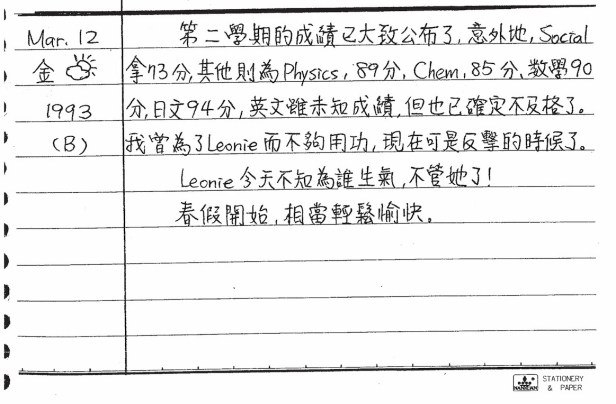 Mar. 12
金
1993
(B)
第二學期的成績已大致公布了，意外地，Social
拿73分，其他則為Physics，89分，Chem，85分，數學90
分，日文94分，英文雖未知成績，但也已確定不及格了。
我曾為了Leonie而不夠用功，現在可是反擊的時候了。
Leonie今天不知為誰生氣，不管她了！
春假開始，相當輕鬆愉快。
STATIONERY
& PAPER